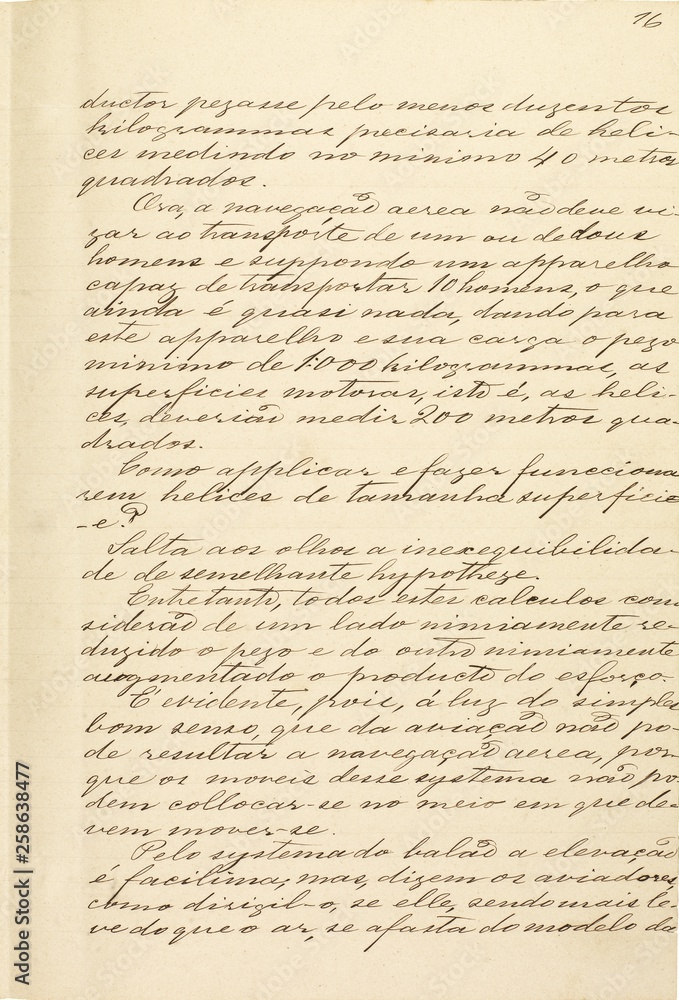 16
ductor pezasse pelo menos duzentos
kilogrammas precisaria de heli-
ces medindo no minimo 40 metros
quadrados.
Ora, a navegação aerea não deve vi-
zar ao transpórte de um ou de dous
homens e suppondo um apparelho
capaz de transportar 10 homens, o que
ainda é quasi nada, dando para
este apparelho e sua carga o pezo
minimo de 1:000 kilogrammas, as
superficies motoras, isto é, as heli-
ces, deverião medir 200 metros qua-
drados.
Como applicar e fazer funcciona
rem helices de tamanha superficie
-e?
Salta aos olhos a inexequibilida-
de de semelhante hypotheze.
Entretanto, todos estes calculos con
siderão de um lado nimiamente re-
duzido o pezo e do outro nimiamente
augmentado o producto do esforço.
É evidente, pois, á luz do simples
bom senso, que da aviação não po-
de resultar a navegação aerea, por
que os moveis desse systema não po-
dem collocar-se no meio em que de-
vem mover-se.
Pelo systema do balão a elevação
é facilima; mas, dizem os aviadores,
como dirigil-o, se elle, sendo mais le-
ve do que o ar, se afasta do modelo da
Adobe Stock | #258638477